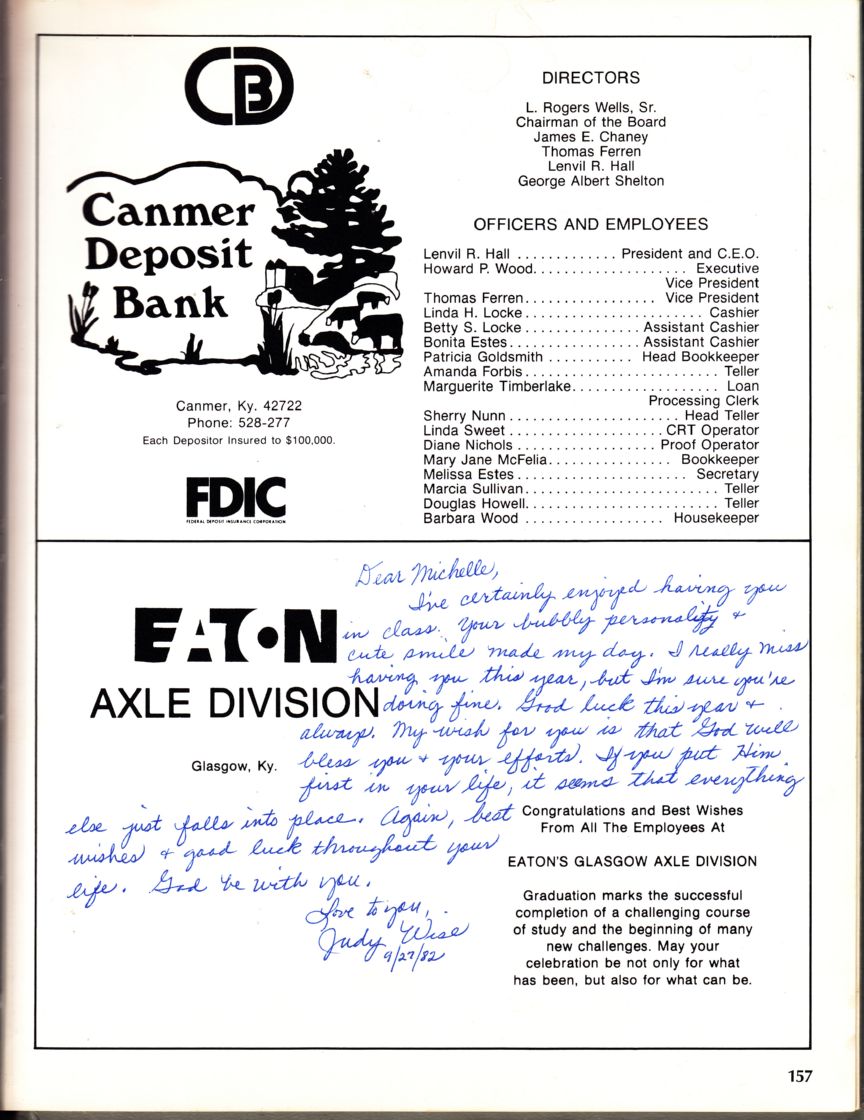 CDB
Canmer
Deposit
Bank
Canmer, Ky. 42722
Phone: 528-277
Each Depositor Insured to $100,000.
FDIC
FEDERAL DEPOSIT INSURANCE CORPORATION
DIRECTORS
L. Rogers Wells, Sr.
Chairman of the Board
James E. Chaney
Thomas Ferren
Lenvil R. Hall
George Albert Shelton
OFFICERS AND EMPLOYEES
Lenvil R. Hall ............. President and C.E.O.
Howard P. Wood.................... Executive
Vice President
Thomas Ferren................. Vice President
Linda H. Locke....................... Cashier
Betty S. Locke............... Assistant Cashier
Bonita Estes................. Assistant Cashier
Patricia Goldsmith ........... Head Bookkeeper
Amanda Forbis......................... Teller
Marguerite Timberlake................... Loan
Processing Clerk
Sherry Nunn...................... Head Teller
Linda Sweet.................... CRT Operator
Diane Nichols.................. Proof Operator
Mary Jane McFelia................ Bookkeeper
Melissa Estes....................... Secretary
Marcia Sullivan......................... Teller
Douglas Howell......................... Teller
Barbara Wood .................. Housekeeper
EATON
AXLE DIVISION
Glasgow, Ky.
Dear Michelle,
I've certainly enjoyed having you
in class. Your bubbly personality &
cute smile made my day. I really miss
having you this year, but I'm sure you're
doing fine. Good luck this year &
always. My wish for you is that God will
bless you & your efforts. If you put Him
first in your life, it seems that everything
else just falls into place. Again, best
wishes & good luck throughout your
life. God be with you.
Love to you,
Judy Wise
9/27/82
Congratulations and Best Wishes
From All The Employees At
EATON'S GLASGOW AXLE DIVISION
Graduation marks the successful
completion of a challenging course
of study and the beginning of many
new challenges. May your
celebration be not only for what
has been, but also for what can be.
157